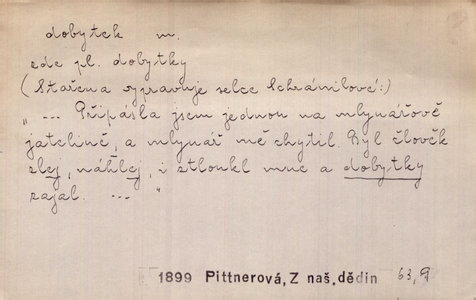 dobytek m.
zde pl. dobytky
(Stařena vypravuje selce Schrámilové:)
"... Připásla jsem jednou na mlynářově
jatelině, a mlynář mě chytil. Byl člověk
zlej, náhlej, i stloukl mne a dobytky
zajal. ... "
1899 Pittnerová, Z naš. dědin 63, 9